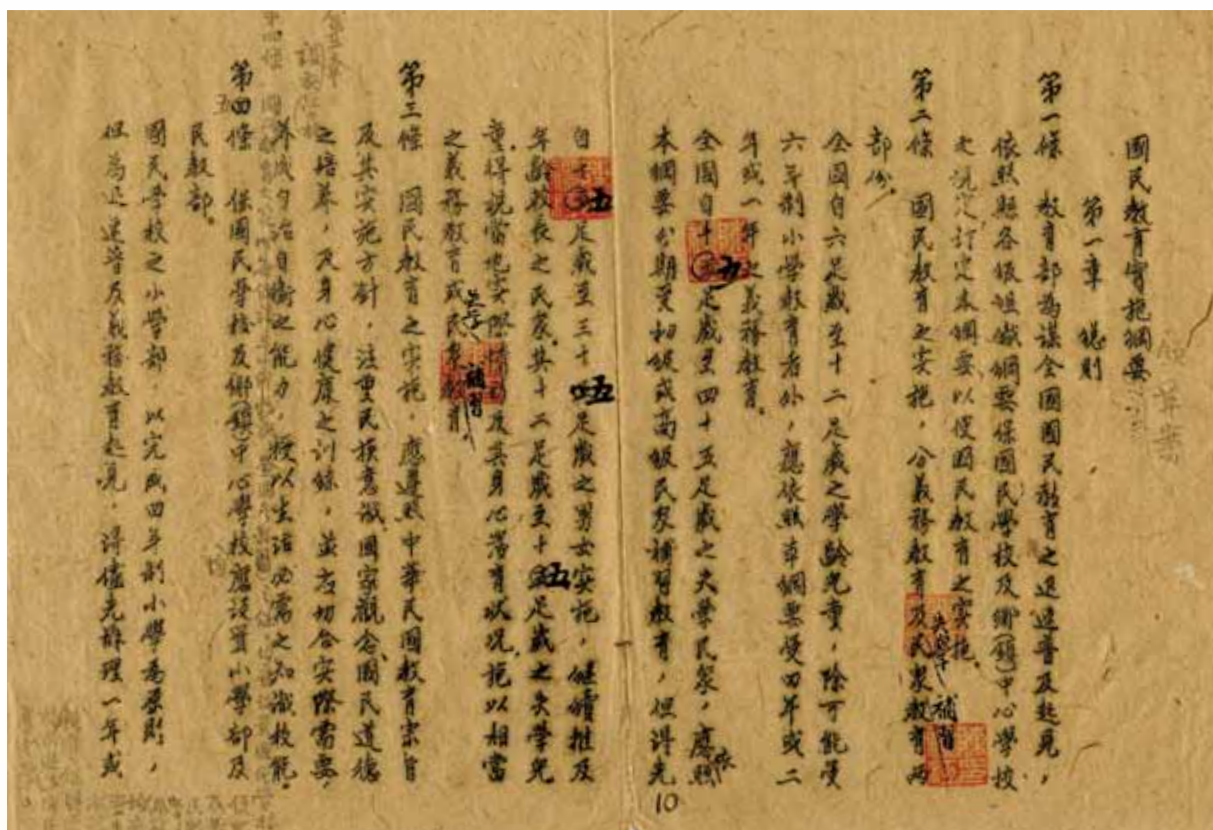 國民教育實施綱要
第一章 總則
第一條 教育部為謀全國國民教育之迅速普及起見，
依照縣各級組織綱要保國民學校及鄉（鎮）中心學校
之規定訂定本綱要以便國民教育之實施。
第二條 國民教育之實施，分義務教育及失學民眾補習教育兩
部份，
全國自六足歲至十二足歲之學齡兒童，除可能受
六年制小學教育者外，應依照本綱要受四年或二
年或一年之義務教育。
全國自十五足歲至四十五足歲之失學民眾，應依照
本綱要分期受初級或高級民眾補習教育，但得先
自十五足歲至三十五足歲之男女實施，繼續推及
年齡較長之民眾，其十二足歲至十五足歲之失學兒
童，得視當地實際情形及其身心發育狀況，施以相當
之義務教育或失學民眾補習教育，
第三條 國民教育之實施，應遵照中華民國教育宗旨
及其實施方針，注重民族意識國家觀念國民道德
之培養，及身心健康之訓練，並應切合實際需要，
養成自治自衛之能力，授以生活必需之知識技能。
第四條 保國民學校及鄉（鎮）中心學校應設置小學部及
五
民教部。
國民學校之小學部，以完成四年制小學為原則，
但為迅速普及義務教育起見，得儘先辦理一年或
10
草案